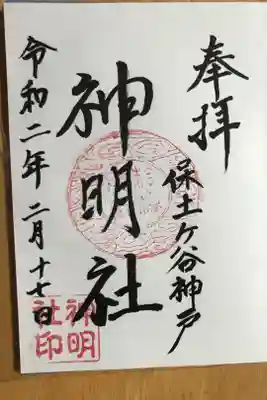 奉拝
保土ケ谷神戸
神明社
令和二年二月十七日
神明
社印